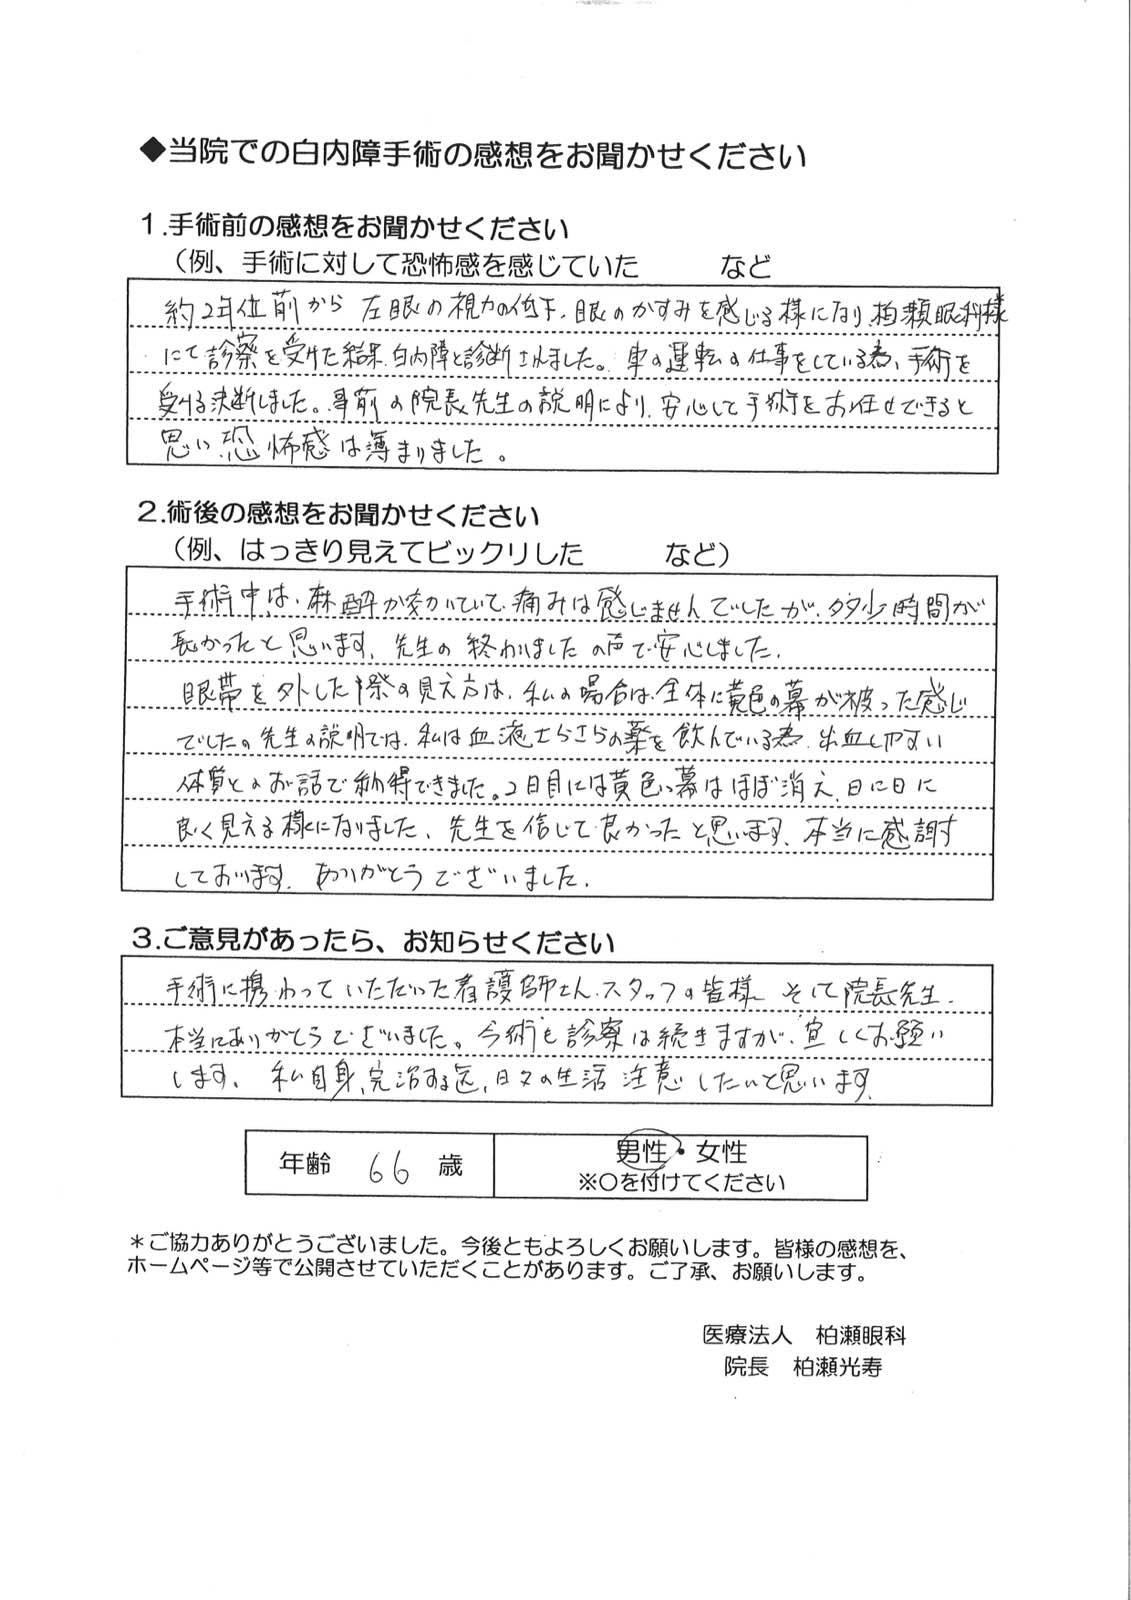 ◆当院での白内障手術の感想をお聞かせください
1.手術前の感想をお聞かせください
（例、手術に対して恐怖感を感じていた　　　など
約2年位前から 左眼の視力の低下、眼のかすみを感じる様になり、柏瀬眼科様
にて診察を受けた結果、白内障と診断されました。車の運転の仕事をしている為、手術を
受ける決断しました。事前の院長先生の説明により、安心して手術をお任せできると
思い恐怖感は薄まりました。
2.術後の感想をお聞かせください
（例、はっきり見えてビックリした　　　など）
手術中は、麻酔が効いていて、痛みは感じませんでしたが、多少時間が
長かったと思います、先生の終わりましたの声で安心しました、
眼帯を外した際の見え方は、私の場合は、全体に黄色の幕が被った感じ
でした。先生の説明では、私は血液さらさらの薬を飲んでいる為、出血しやすい
体質とのお話で納得できました。2日目には黄色い幕はほぼ消え、日に日に
良く見える様になりました、先生を信じて良かったと思います、本当に感謝
しております、ありがとうございました、
3.ご意見があったら、お知らせください
手術に携わっていただいた看護師さん、スタッフの皆様、そして院長先生、
本当にありがとうございました。今術も診察は続きますが、宜しくお願い
します、私自身、完治する迄、日々の生活 注意したいと思います、
年齢 66 歳
男性・女性
※○を付けてください
＊ご協力ありがとうございました。今後ともよろしくお願いします。皆様の感想を、
ホームページ等で公開させていただくことがあります。ご了承、お願いします。
医療法人　柏瀬眼科
院長　柏瀬光寿